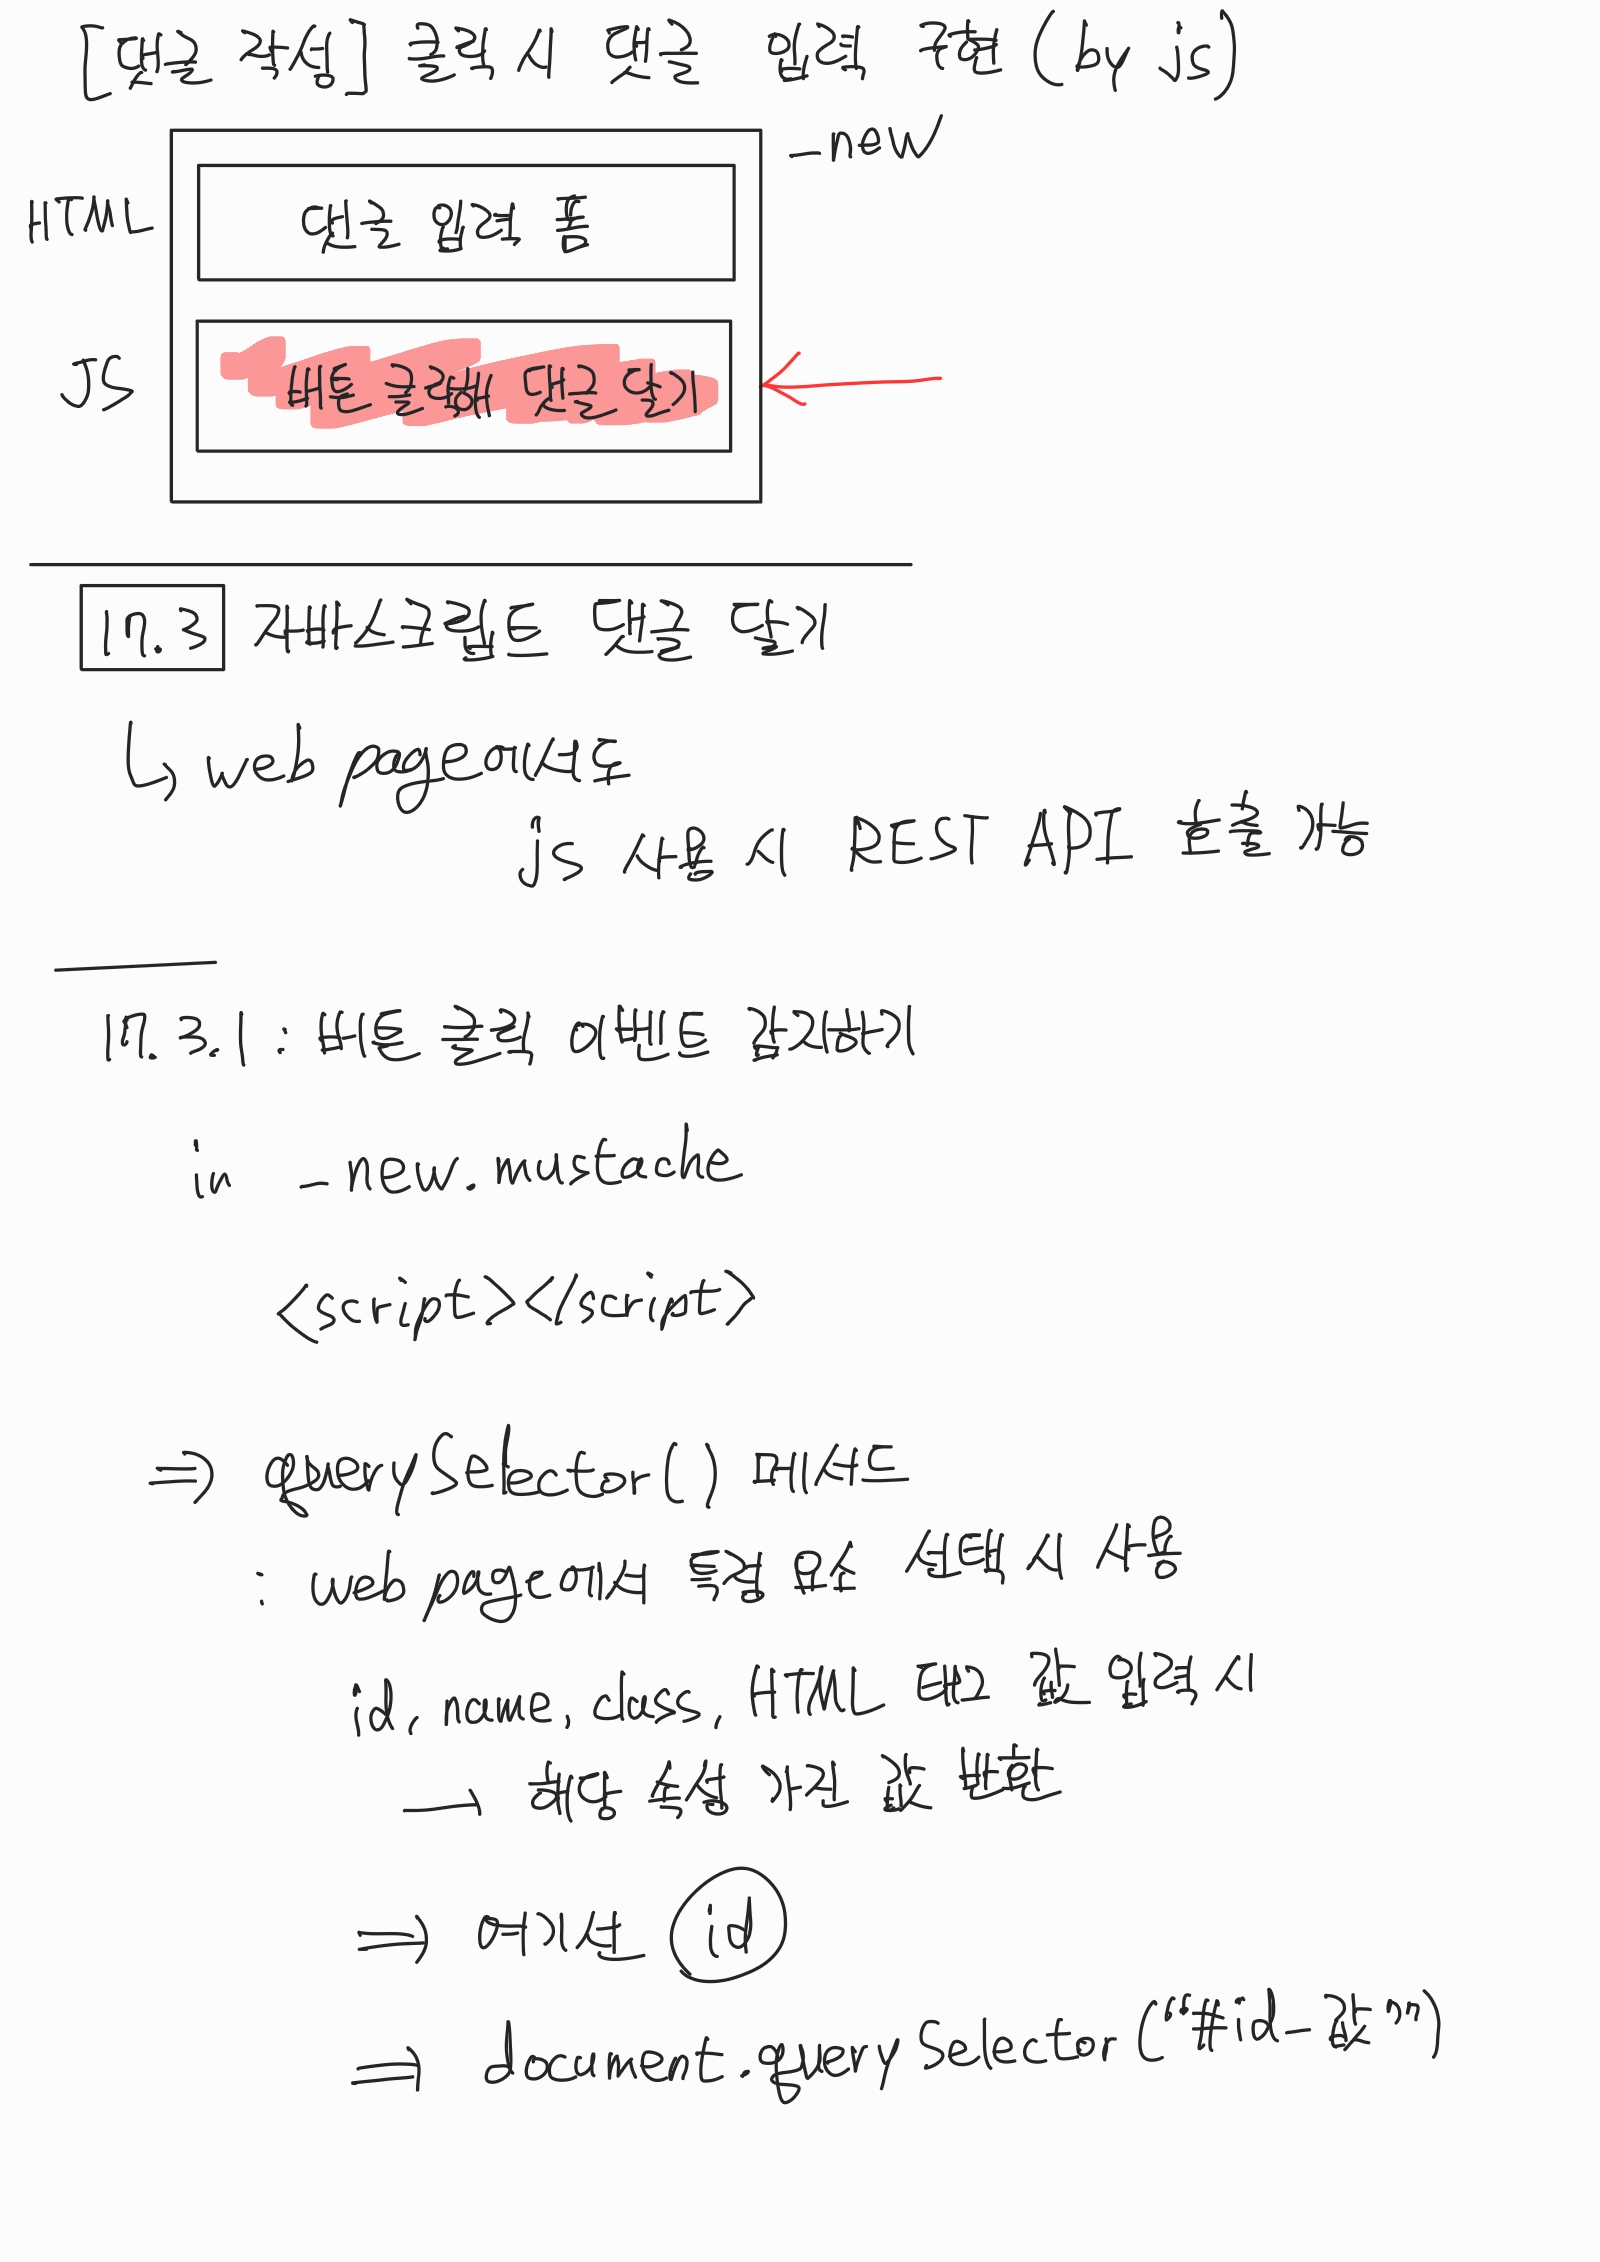 [댓글 작성] 클릭 시 댓글 입력 구현 (by js)
_new
HTML
댓글 입력 폼
JS
버튼 클릭해 댓글 달기
17.3 자바스크립트 댓글 달기
↳ web page에서도
js 사용 시 REST API 호출 가능
17.3.1 : 버튼 클릭 이벤트 감지하기
in _new.mustache
<script></script>
⇒ querySelector() 메서드
: web page에서 특정 요소 선택 시 사용
id, name, class, HTML 태그 값 입력 시
→ 해당 속성 가진 값 반환
⇒ 여기선 id
⇒ document.querySelector(“#id_값”)